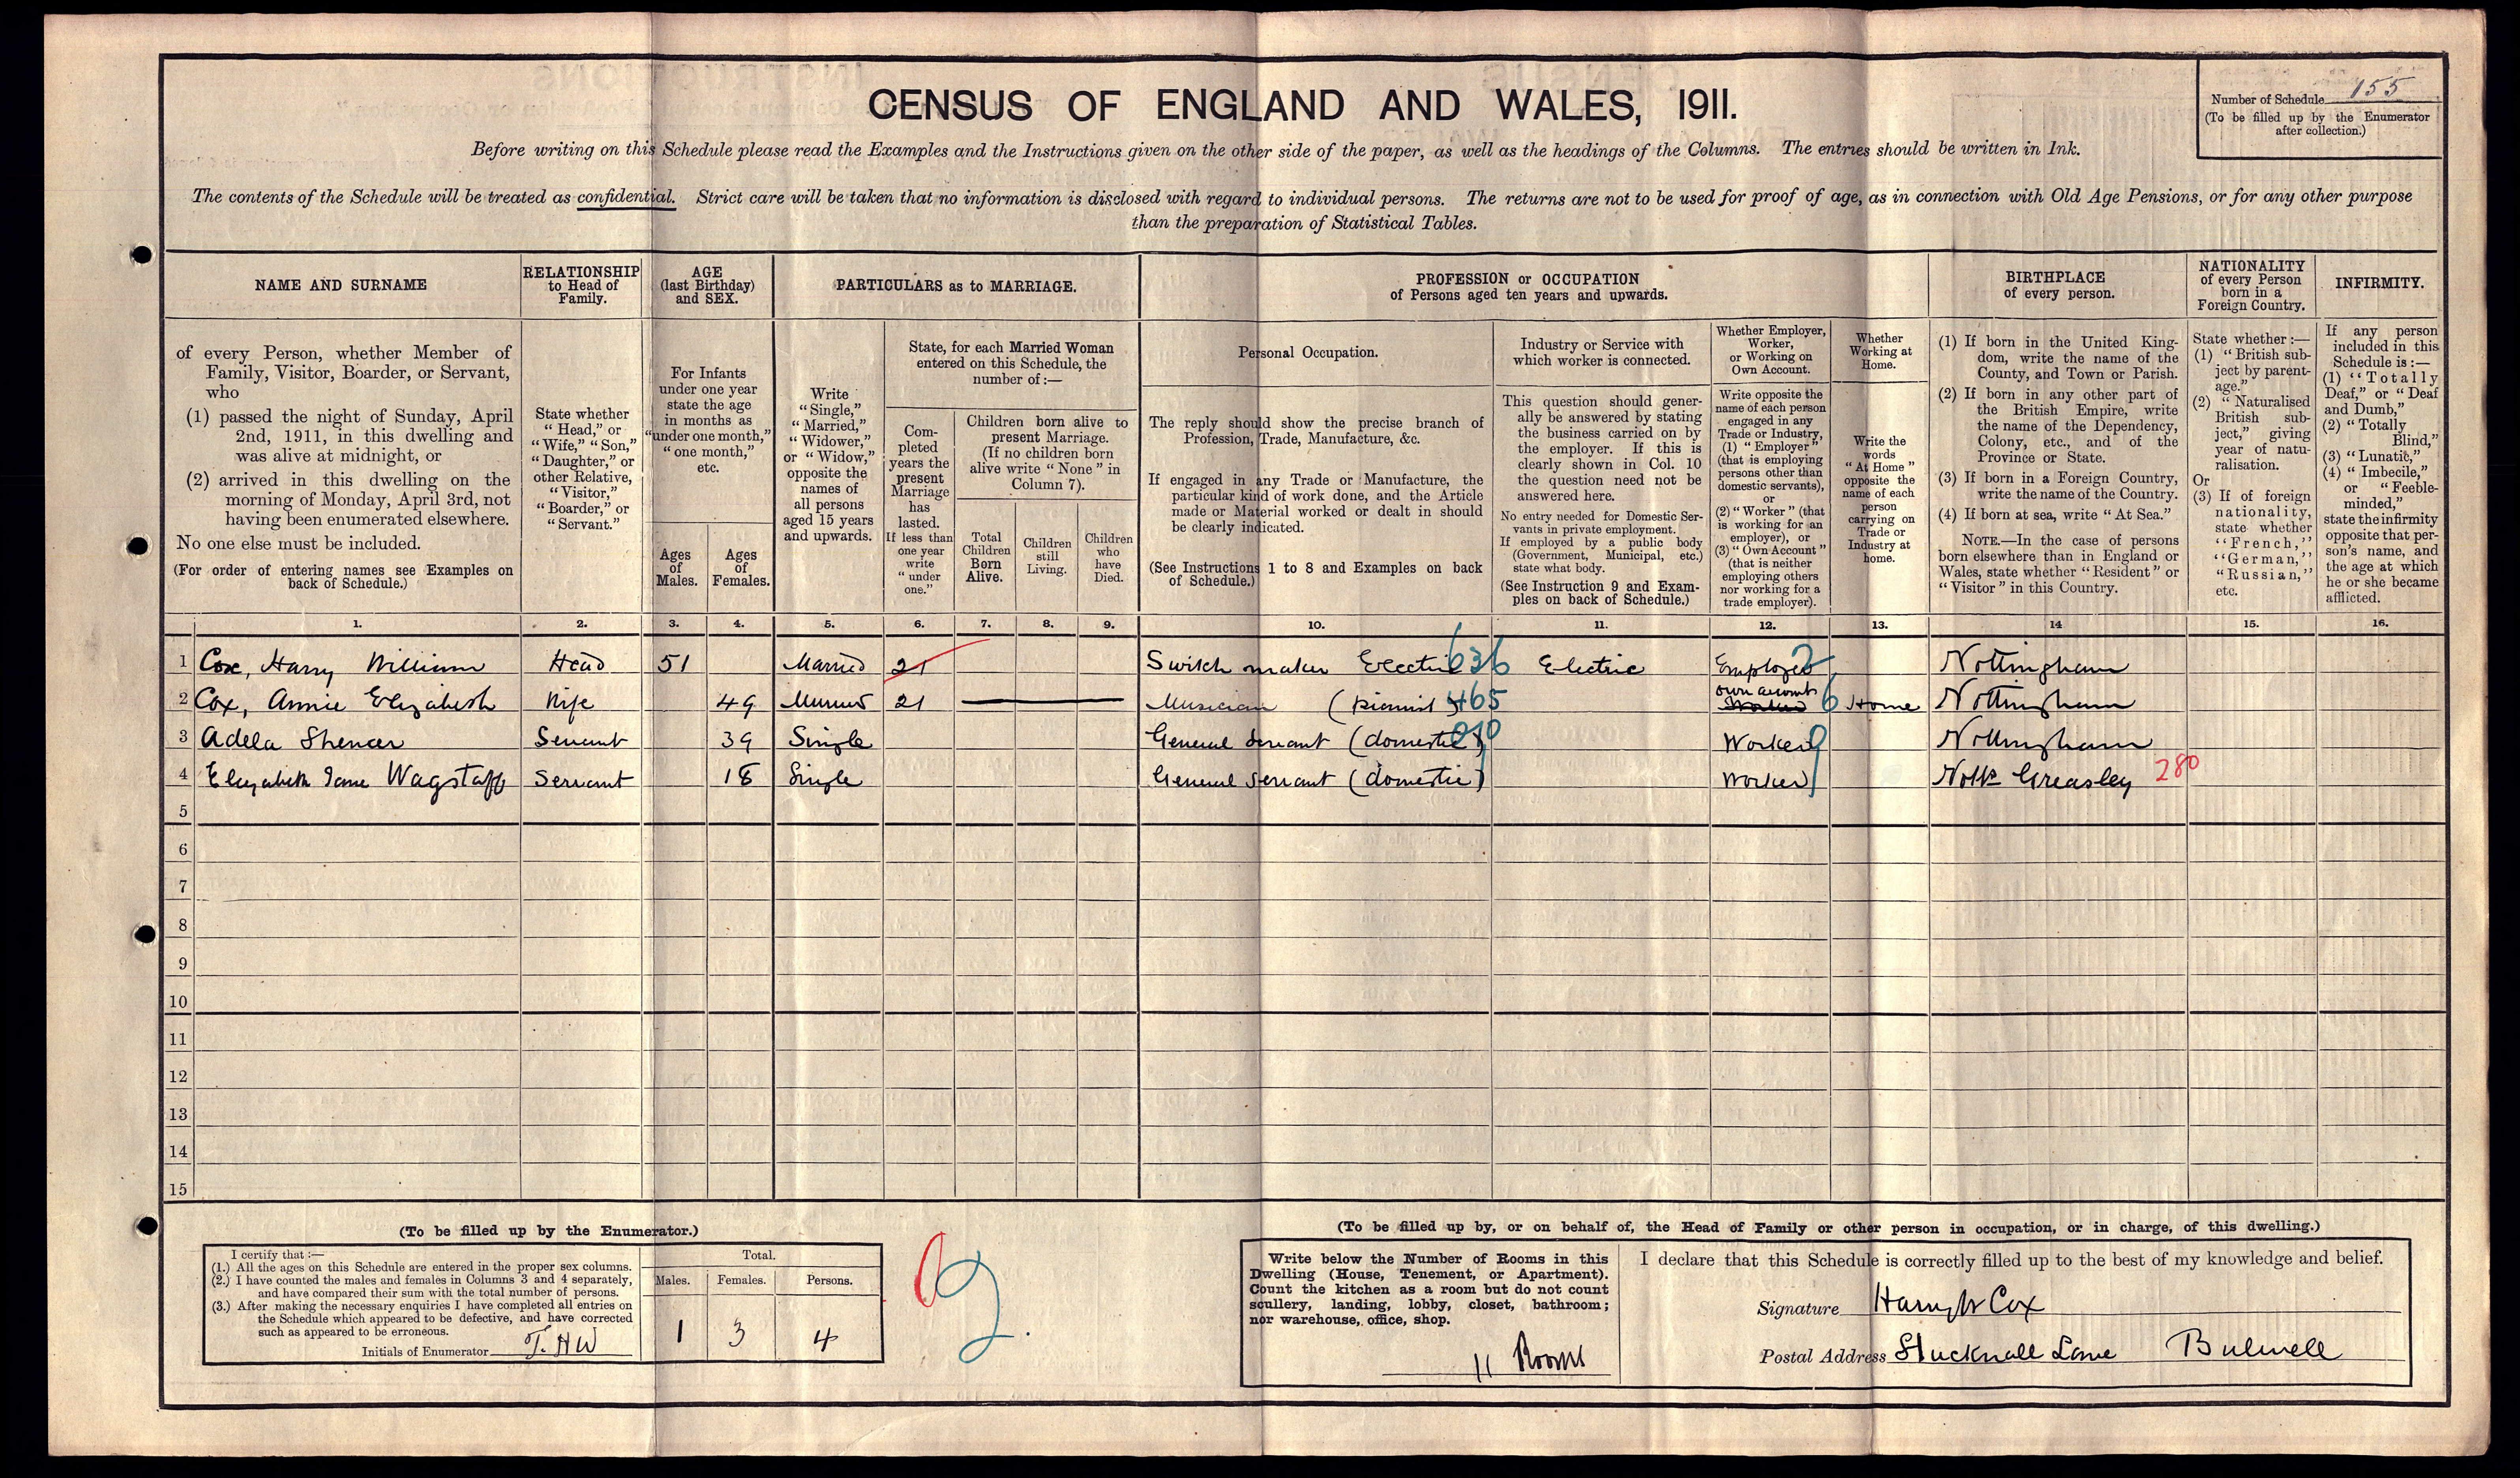 Number of Schedule 155
(To be filled up by the Enumerator
after collection.)
CENSUS OF ENGLAND AND WALES, 1911.
Before writing on this Schedule please read the Examples and the Instructions given on the other side of the paper, as well as the headings of the Columns. The entries should be written in Ink.
The contents of the Schedule will be treated as confidential. Strict care will be taken that no information is disclosed with regard to individual persons. The returns are not to be used for proof of age, as in connection with Old Age Pensions, or for any other purpose
than the preparation of Statistical Tables.
NAME AND SURNAME
RELATIONSHIP
to Head of
Family.
AGE
(last Birthday)
and SEX.
PARTICULARS as to MARRIAGE.
PROFESSION or OCCUPATION
of Persons aged ten years and upwards.
BIRTHPLACE
of every person.
NATIONALITY
of every Person
born in a
Foreign Country.
INFIRMITY.
of every Person, whether Member of
Family, Visitor, Boarder, or Servant,
who
(1) passed the night of Sunday, April
2nd, 1911, in this dwelling and
was alive at midnight, or
(2) arrived in this dwelling on the
morning of Monday, April 3rd, not
having been enumerated elsewhere.
No one else must be included.
(For order of entering names see Examples on
back of Schedule.)
State whether
"Head," or
"Wife," "Son,"
"Daughter," or
other Relative,
"Visitor,"
"Boarder," or
"Servant."
For Infants
under one year
state the age
in months as
"under one month,"
"one month,"
etc.
Ages
of
Males.
Ages
of
Females.
Write
"Single,"
"Married,"
"Widower,"
or "Widow,"
opposite the
names of
all persons
aged 15 years
and upwards.
State, for each Married Woman
entered on this Schedule, the
number of:—
Com-
pleted
years the
present
Marriage
has
lasted.
If less than
one year
write
"under
one."
Children born alive to
present Marriage.
(If no children born
alive write "None" in
Column 7).
Total
Children
Born
Alive.
Children
still
Living.
Children
who
have
Died.
Personal Occupation.
The reply should show the precise branch of
Profession, Trade, Manufacture, &c.
If engaged in any Trade or Manufacture, the
particular kind of work done, and the Article
made or Material worked or dealt in should
be clearly indicated.
(See Instructions 1 to 8 and Examples on back
of Schedule.)
Industry or Service with
which worker is connected.
This question should gener-
ally be answered by stating
the business carried on by
the employer. If this is
clearly shown in Col. 10
the question need not be
answered here.
No entry needed for Domestic Ser-
vants in private employment.
If employed by a public body
(Government, Municipal, etc.)
state what body.
(See Instruction 9 and Exam-
ples on back of Schedule.)
Whether Employer,
Worker,
or Working on
Own Account.
Write opposite the
name of each person
engaged in any
Trade or Industry,
(1) "Employer"
(that is employing
persons other than
domestic servants),
or
(2) "Worker" (that
is working for an
employer), or
(3) "Own Account"
(that is neither
employing others
nor working for a
trade employer).
Whether
Working at
Home.
Write the
words
"At Home"
opposite the
name of each
person
carrying on
Trade or
Industry at
home.
(1) If born in the United King-
dom, write the name of the
County, and Town or Parish.
(2) If born in any other part of
the British Empire, write
the name of the Dependency,
Colony, etc., and of the
Province or State.
(3) If born in a Foreign Country,
write the name of the Country.
(4) If born at sea, write "At Sea."
NOTE.—In the case of persons
born elsewhere than in England or
Wales, state whether "Resident" or
"Visitor" in this Country.
State whether:—
(1) "British sub-
ject by parent-
age."
(2) "Naturalised
British sub-
ject," giving
year of natu-
ralisation.
Or
(3) If of foreign
nationality,
state whether
"French,"
"German,"
"Russian,"
etc.
If any person
included in this
Schedule is:—
(1) "Totally
Deaf," or "Deaf
and Dumb,"
(2) "Totally
Blind,"
(3) "Lunatic,"
(4) "Imbecile,"
or "Feeble-
minded,"
state the infirmity
opposite that per-
son's name, and
the age at which
he or she became
afflicted.
1. 2. 3. 4. 5. 6. 7. 8. 9. 10. 11. 12. 13. 14 15. 16.
1 Cox, Harry William Head 51 Married 21 Switch maker Electric 636 Electric Employer 2 Nottingham
2 Cox, Annie Elizabeth Wife 49 Married 21 Musician (pianist) 465 own account Worker 6 Home Nottingham
3 Adela Spencer Servant 39 Single General Servant (domestic) 010 Worker 9 Nottingham
4 Elizabeth Jane Wagstaff Servant 18 Single General servant (domestic) Worker Notts Greasley 280
5
6
7
8
9
10
11
12
13
14
15
(To be filled up by the Enumerator.)
I certify that:—
(1.) All the ages on this Schedule are entered in the proper sex columns.
(2.) I have counted the males and females in Columns 3 and 4 separately,
and have compared their sum with the total number of persons.
(3.) After making the necessary enquiries I have completed all entries on
the Schedule which appeared to be defective, and have corrected
such as appeared to be erroneous.
Initials of Enumerator T. H W
Total.
Males. Females. Persons.
1 3 4
(To be filled up by, or on behalf of, the Head of Family or other person in occupation, or in charge, of this dwelling.)
Write below the Number of Rooms in this
Dwelling (House, Tenement, or Apartment).
Count the kitchen as a room but do not count
scullery, landing, lobby, closet, bathroom;
nor warehouse, office, shop.
11 Rooms
I declare that this Schedule is correctly filled up to the best of my knowledge and belief.
Signature Harry W Cox
Postal Address Hucknall Lane Bulwell